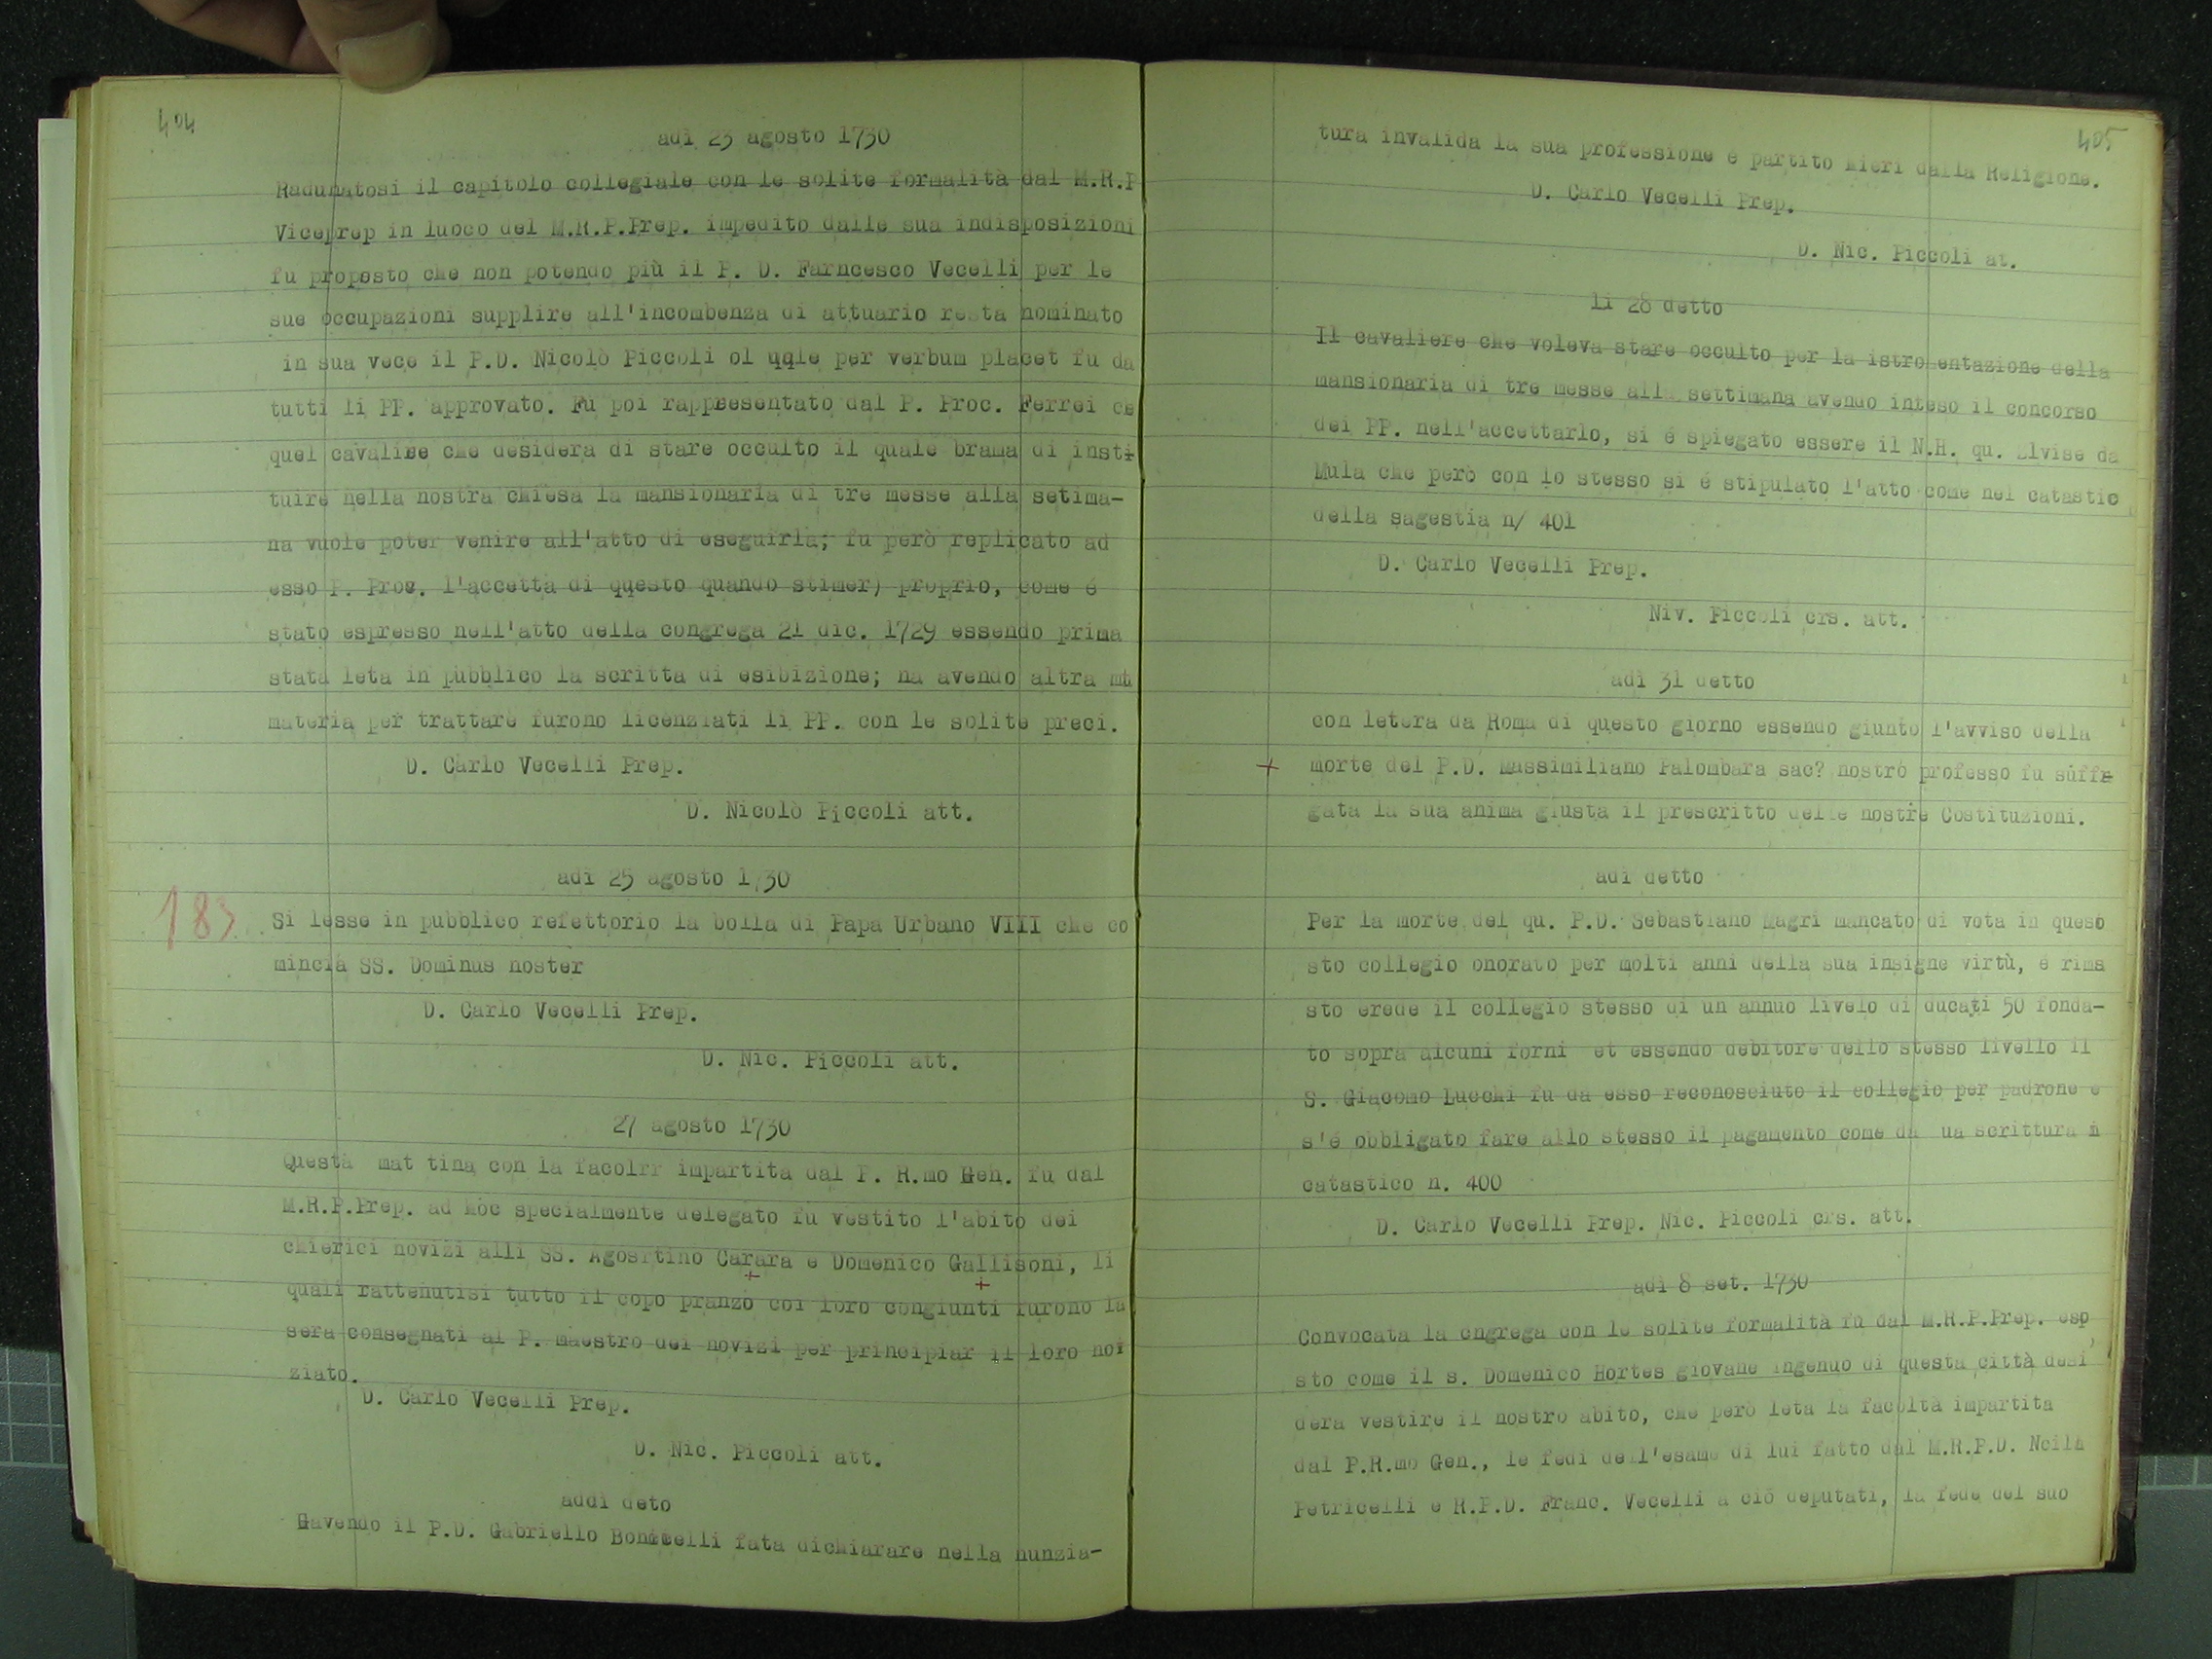 404
adì 23 agosto 1730
Radunatosi il capitolo collegiale con le solite formalità dal M.R.P
Viceprep in luoco del M.R.P.Prep. impedito dalle sua indisposizioni
fu proposto che non potendo più il P. D. Farncesco Vecelli per le
sue occupazioni supplire all'incombenza di attuario resta nominato
in sua vece il P.D. Nicolò Piccoli ol qqle per verbum placet fu da
tutti li PP. approvato. Fu poi rappresentato dal P. Proc. Ferrei ce
quel cavaliee che desidera di stare occulto il quale brama di insti
tuire nella nostra chiesa la mansionaria di tre messe alla setima-
na vuole poter venire all'atto di eseguirla; fu però replicato ad
esso P. Proc. l'accetta di questo quando stimer) proprio, come é
stato espresso nell'atto della congrega 21 dic. 1729 essendo prima
stata leta in pubblico la scritta di esibizione; na avendo altra mt
materia per trattare furono licenziati li PP. con le solite preci.
D. Carlo Vecelli Prep.
D. Nicolò Piccoli att.
adì 25 agosto 1730
183 Si lesse in pubblico refettorio la bolla di Papa Urbano VIII che co
mincia SS. Dominus noster
D. Carlo Vecelli Prep.
D. Nic. Piccoli att.
27 agosto 1730
Questa mat tina con la facolrr impartita dal P. R.mo Gen. fu dal
M.R.P.Prep. ad hoc specialmente delegato fu vestito l'abito dei
chierici novizi alli SS. Agosrtino Carara e Domenico Gallisoni, li
+ +
quali rattenutisi tutto il copo pranzo coi loro congiunti furono la
sera consegnati al P. maestro dei novizi per principiar il loro noi
ziato.
D. Carlo Vecelli Prep.
D. Nic. Piccoli att.
addì deto
Gavendo il P.D. Gabriello Bonicelli fata dichiarare nella nunzia-
405
tura invalida la sua professione e partito hieri dalla Religione.
D. Carlo Vecelli Prep.
D. Nic. Piccoli at.
li 28 detto
Il cavaliere che voleva stare occulto per la istromentazione della
mansionaria di tre messe alla settimana avendo inteso il concorso
dei PP. nell'accettarlo, si é spiegato essere il N.H. qu. Elvise da
Mula che però con lo stesso si é stipulato l'atto come nel catastic
della sagestia n/ 401
D. Carlo Vecelli Prep.
Niv. Piccoli crs. att.
adì 31 detto
con letera da Roma di questo giorno essendo giunto l'avviso della
+ morte del P.D. Massimiliano Palombara sac? nostro professo fu suffr
gata la sua anima giusta il prescritto delle nostre Costituzioni.
adì detto
Per la morte del qu. P.D. Sebastiano Magri mancato di vota in queso
sto collegio onorato per molti anni della sua insigne virtù, é rima
sto erede il collegio stesso di un annuo livelo di ducati 50 fonda-
to sopra alcuni forni et essendo debitore dello stesso livello il
S. Giacomo Lucchi fu da esso reconosciuto il collegio per padrone e
s'é obbligato fare allo stesso il pagamento come da ua scrittura in
catastico n. 400
D. Carlo Vecelli Prep. Nic. Piccoli crs. att.
adì 8 set. 1730
Convocata la cngrega con le solite formalità fu dal M.R.P.Prep. esp
sto come il s. Domenico Hortes giovane ingenuo di questa città desi
dera vestire il nostro abito, che però leta la facoltà impartita
dal P.R.mo Gen., le fedi dell'esame di lui fatto dal M.R.P.D. Ncila
Petricelli e R.P.D. Franc. Vecelli a ciò deputati, la fede del suo